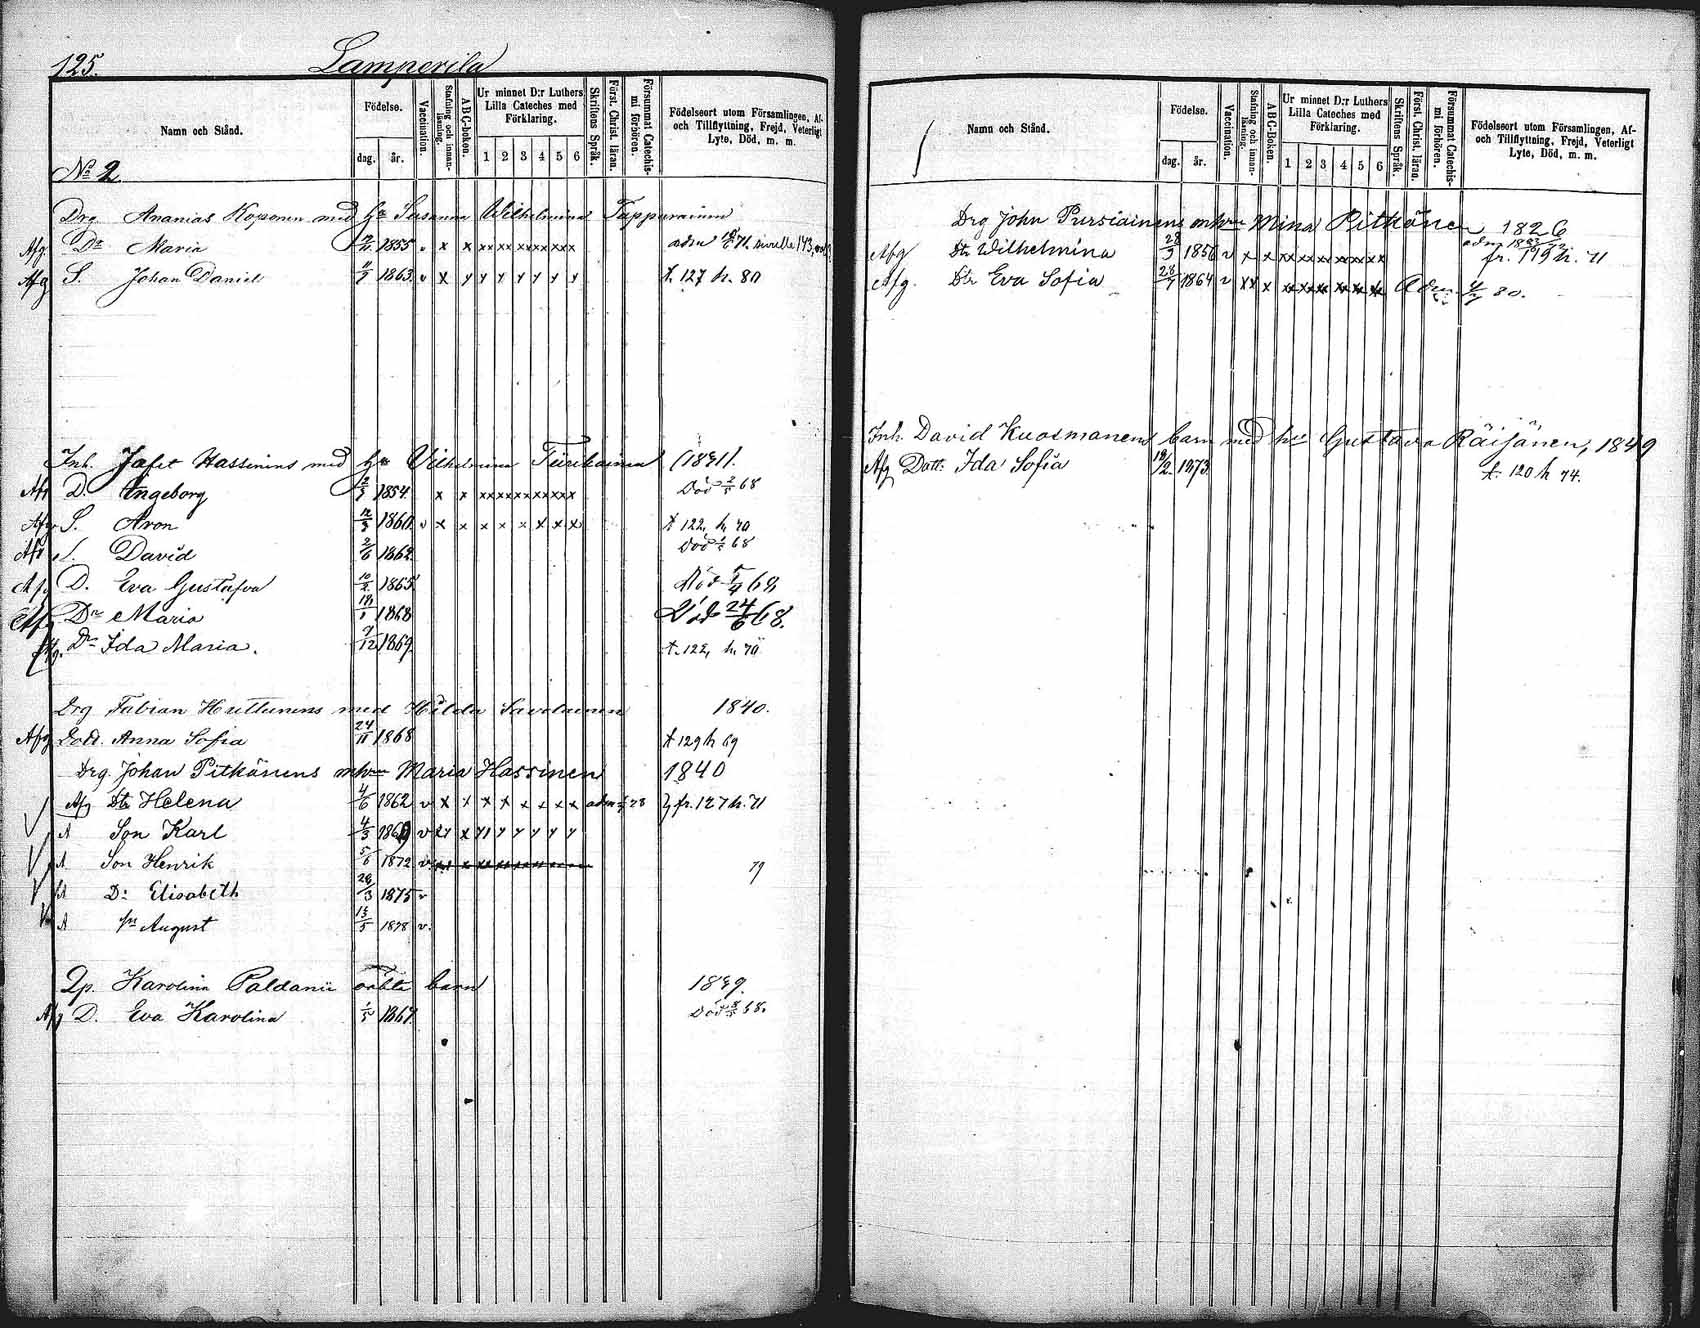 125. Lamperila
Namn och Stånd.
Födelse.
dag. år.
Vaccination.
Stafning och innan-läsning.
ABC-boken.
Ur minnet D:r Luthers Lilla Cateches med Förklaring.
1 2 3 4 5 6
Skriftens Språk.
Först. Christ. läran.
Försummat Catechis-mi förhören.
Födelseort utom Församlingen, Af- och Tillflyttning, Frejd, Veterligt Lyte, Död, m. m.
No 2
Drg. Ananias Koponen med hu Susanna Wilhelmina Tappurainen
Afg. Dr Maria 1855 x x xx xx xx xx xx
Afg S. Johan Daniel 1863 v x y y y y y y y t. 127 h. 80
Inh. Jafet Hassinens med hu Vilhelmina Tiirikainen (1831).
Afg D. Ingeborg 1854 x x xx xx xx xx xx Död 68
Afg S. Aron 1860 v x x x x x x x x t. 122, h. 70
Afg S. David 2/6 1862 Död 68
Afg D. Eva Gustafva 10/2 1865 Död 68
Afg Dr Maria 1868 Död 24/6 68.
Afg. Dr Ida Maria. 9/12 1869 t. 122, h. 70
Drg Fabian Huttunens med Hilda Savolainen 1840.
Afg Dott. Anna Sofia 24/11 1868 t 129 h 69
Drg. Johan Pitkänens m hu Maria Hassinen 1840
Afg Dr Helena 4/6 1862 v x x x x x x x x fr. 127 h. 71
A Son Karl 4/3 v
A Son Henrik 5/6 1872 v 79
A D: Elisabeth 28/3 1875 v
A sn August 13/5 1878 v.
Qp. Karolina Paldanii oäkta barn 1839.
Afg D. Eva Karolina 1/5 1867 Död 68.
Namn och Stånd.
Födelse.
dag. år.
Vaccination.
Stafning och innan-läsning.
ABC-Boken.
Ur minnet D:r Luthers Lilla Cateches med Förklaring.
1 2 3 4 5 6
Skriftens Språk.
Först. Christ. läran.
Försummat Catechis-mi förhören.
Födelseort utom Församlingen, Af- och Tillflyttning, Frejd, Veterligt Lyte, Död, m. m.
Drg John Pursiainens m hu Mina Pitkänen, 1826
Afg Dr Wilhelmina 28/3 1856 v x x xx xx xx xx xx fr. 119 h. 71
Afg. Dr Eva Sofia 28/7 1864 v xx x Adm. 80.
Inh. David Kuosmanens barn med hu Gustava Räijänen, 1849
Afg Dott: Ida Sofia 1873 t. 120 h 74.